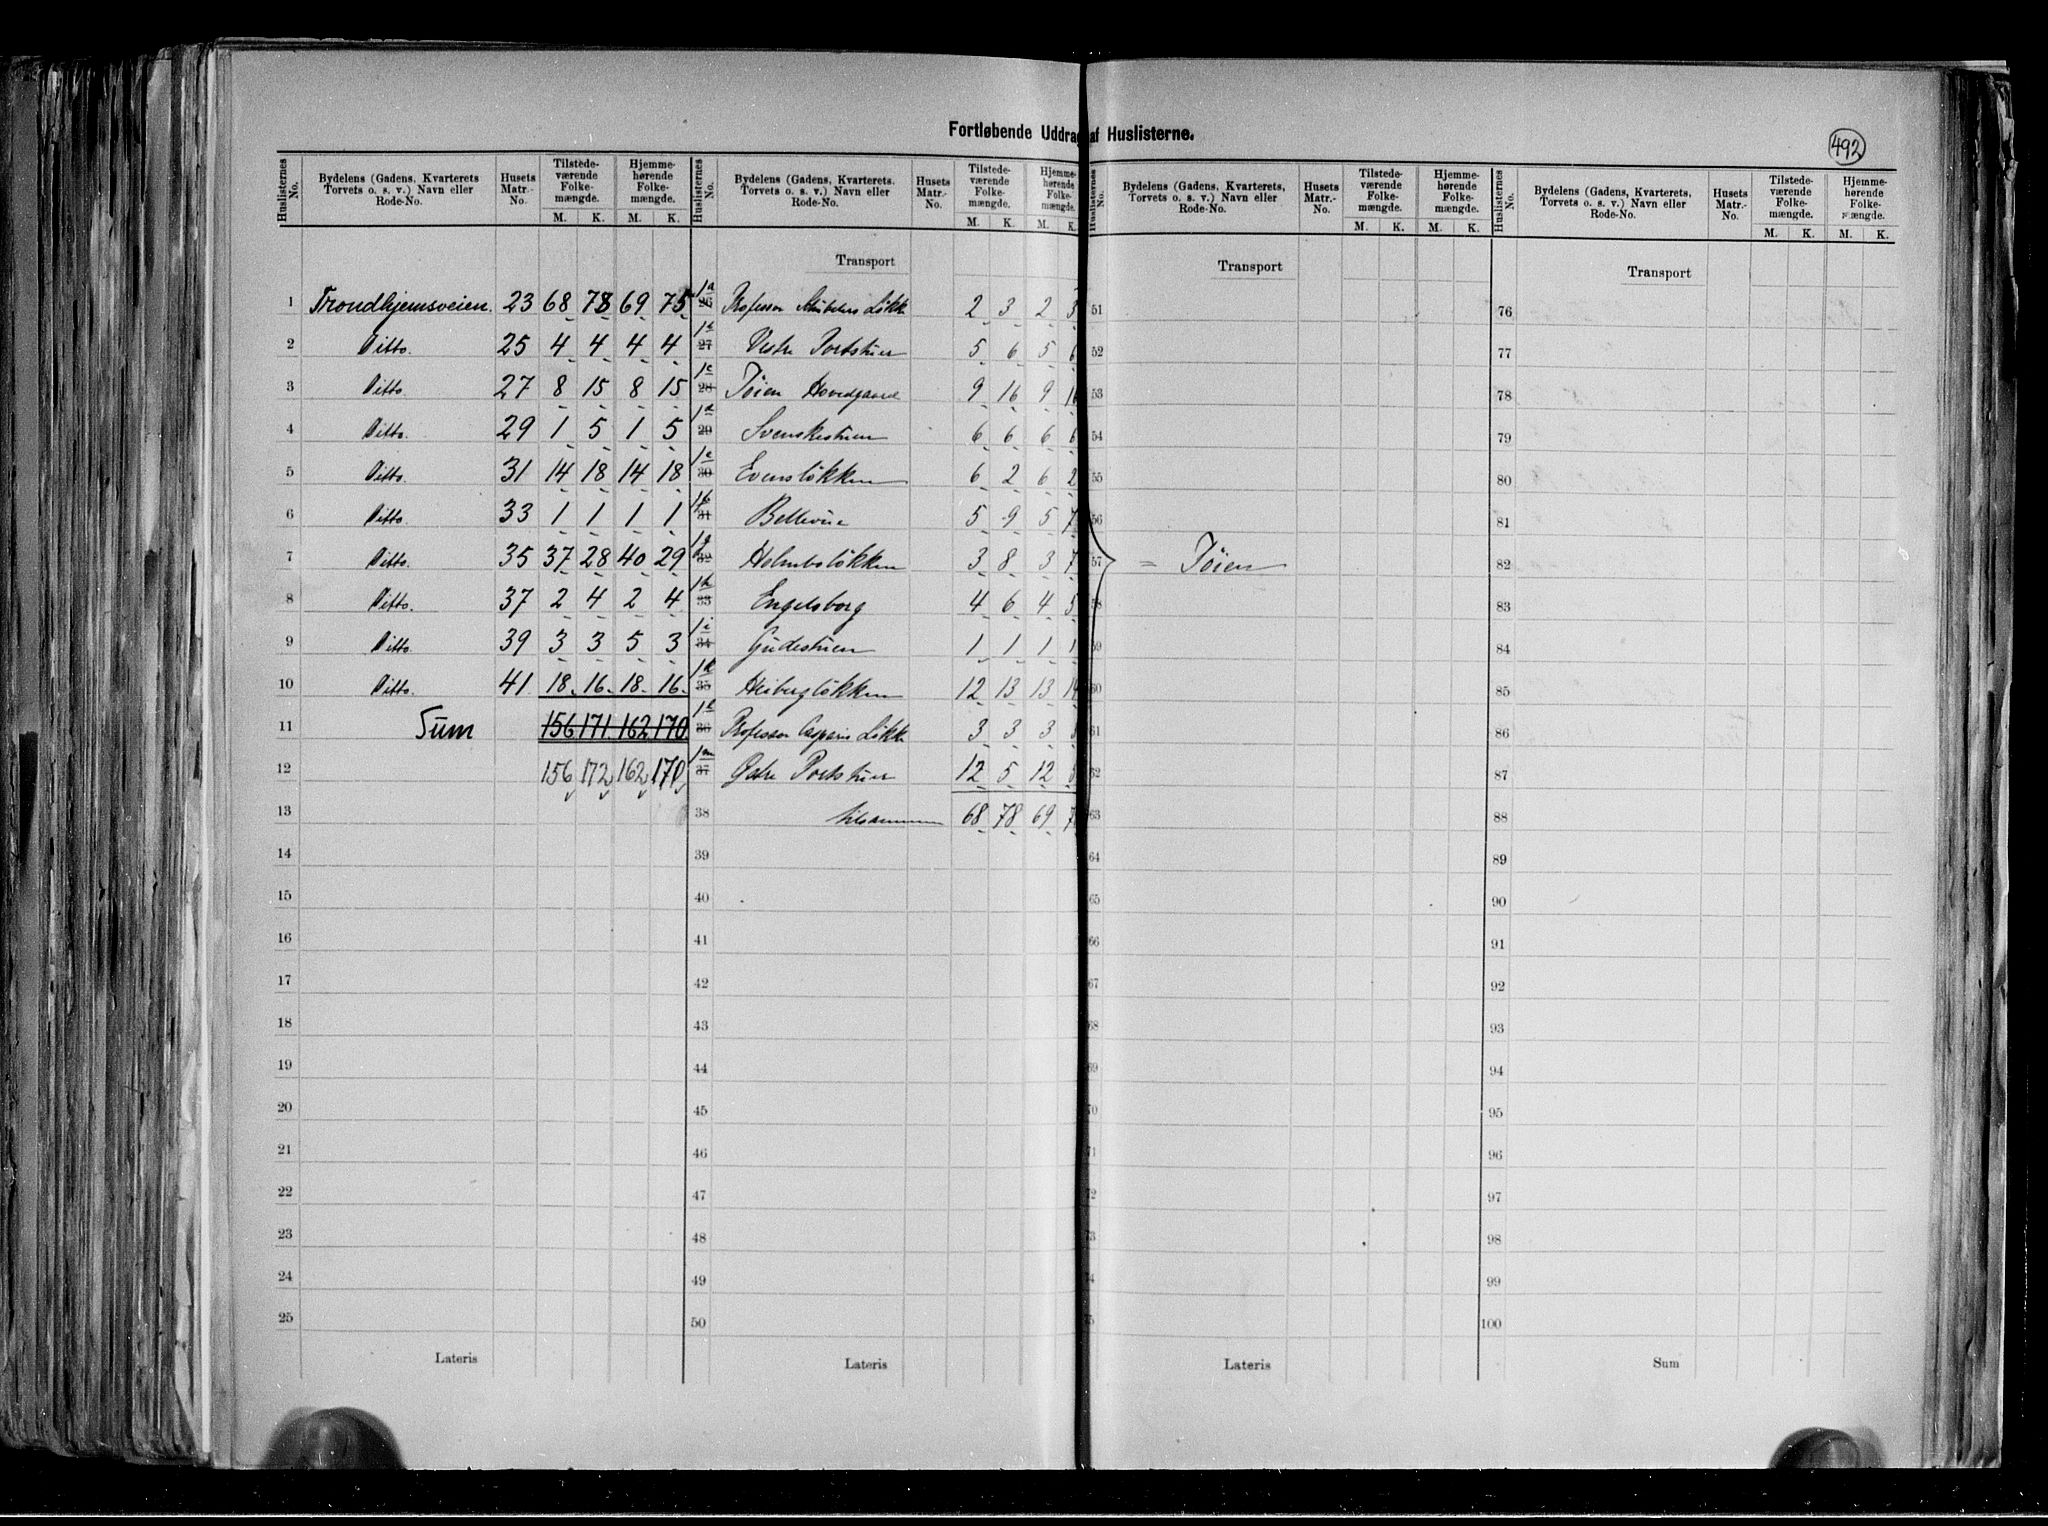 Fortløbende Uddrag af Huslisterne.
492
Huslisternes No. Bydelens (Gadens, Kvarterets, Torvets o. s. v.) Navn eller Rode-No. Husets Matr.-No. Tilstedeværende Folkemængde. M. K. Hjemmehørende Folkemængde. M. K.
1 Trondhjemsveien. 23 68 78 69 75
2 Ditto. 25 4 4 4 4
3 Ditto. 27 8 15 8 15
4 Ditto. 29 1 5 1 5
5 Ditto. 31 14 18 14 18
6 Ditto. 33 1 1 1 1
7 Ditto. 35 37 28 40 29
8 Ditto. 37 2 4 2 4
9 Ditto. 39 3 3 5 3
10 Ditto. 41 18 16 18 16
11 Sum 156 171 162 170
12 156 172 162 170
13
14
15
16
17
18
19
20
21
22
23
24
25
Lateris
Huslisternes No. Bydelens (Gadens, Kvarterets, Torvets o. s. v.) Navn eller Rode-No. Husets Matr.-No. Tilstedeværende Folkemængde. M. K. Hjemmehørende Folkemængde. M. K.
Transport
1a 26 Professor Løkke 2 3 2 3
27 Vestre Portstuen 5 6 5 6
1c 28 Tøien Hovedgaard 9 16 9
1d 29 Svenskestuen 6 6 6 6
1e 30 Evensløkken 6 2 6 2
31 Bellevue 5 9 5 7
1g 32 Holmboløkken 3 8 3 7
1h 33 Engelsborg 4 6 4 5
1i 34 Gudestuen 1 1 1 1
1k 35 Heibergløkken 12 13 13
1l 36 Professor Casparis Løkke 3 3 3
1m 37 Østre Portstuen 12 5 12
38 tilsammen 68 78 69
39
40
41
42
43
44
45
46
47
48
49
50
Lateris
Huslisternes No. Bydelens (Gadens, Kvarterets, Torvets o. s. v.) Navn eller Rode-No. Husets Matr.-No. Tilstedeværende Folkemængde. M. K. Hjemmehørende Folkemængde. M. K.
Transport
51
52
53
54
55
56
57 = Tøien
58
59
60
61
62
63
64
65
66
67
68
69
70
71
72
73
74
75
Lateris
Huslisternes No. Bydelens (Gadens, Kvarterets, Torvets o. s. v.) Navn eller Rode-No. Husets Matr.-No. Tilstedeværende Folkemængde. M. K. Hjemmehørende Folkemængde. M. K.
Transport
76
77
78
79
80
81
82
83
84
85
86
87
88
89
90
91
92
93
94
95
96
97
98
99
100
Sum